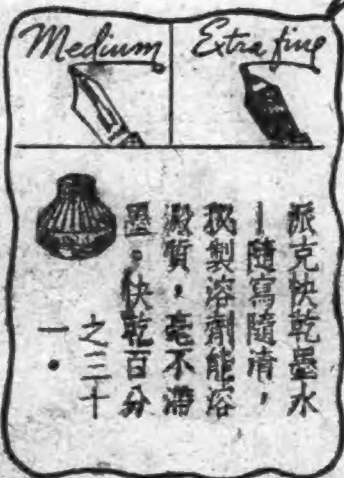 Medium
Extra fine
派克快乾墨水
－隨寫隨清，
秘製溶劑能溶
澱質，毫不滯
墨。快乾百分
之三十
一。